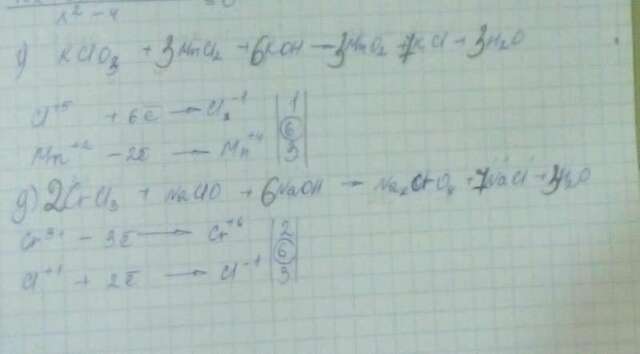 x² - 4
г) KClO₃ + 3MnCl₂ + 6KOH → 3MnO₂ + 7KCl + 3H₂O
Cl⁺⁵ + 6ē → Cl⁻¹ | 1
6
Mn⁺² - 2ē → Mn⁺⁴ | 3
g) 2CrCl₃ + NaClO + 6NaOH → Na₂CrO₄ + 7NaCl + 3H₂O
Cr³⁺ - 3ē → Cr⁺⁶ | 2
6
Cl⁺¹ + 2ē → Cl⁻¹ | 3